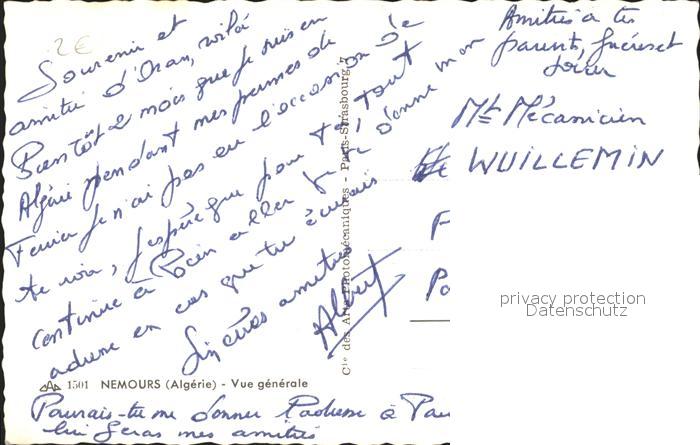 2 €
Souvenir et
amitié d'Oran, voilà
Bientôt 2 mois que je suis en
Algérie pendant mes permes de
Fevrier je n'ai pas eu l'occasion de
te voir, j'espère que pour toi tout
continue à bien aller je te donne mon
adresse en cas que tu écrives
Sincères amitiés
Albert
Amitiés à tes
parents, frères et
Mt Mécanicien
WUILLEMIN
F
Po
privacy protection
Datenschutz
Cie des Arts Photomécaniques - Paris-Strasbourg 7
1501 NEMOURS (Algérie) - Vue générale
Pourais-tu me donner l'adresse à
lui feras mes amitiés